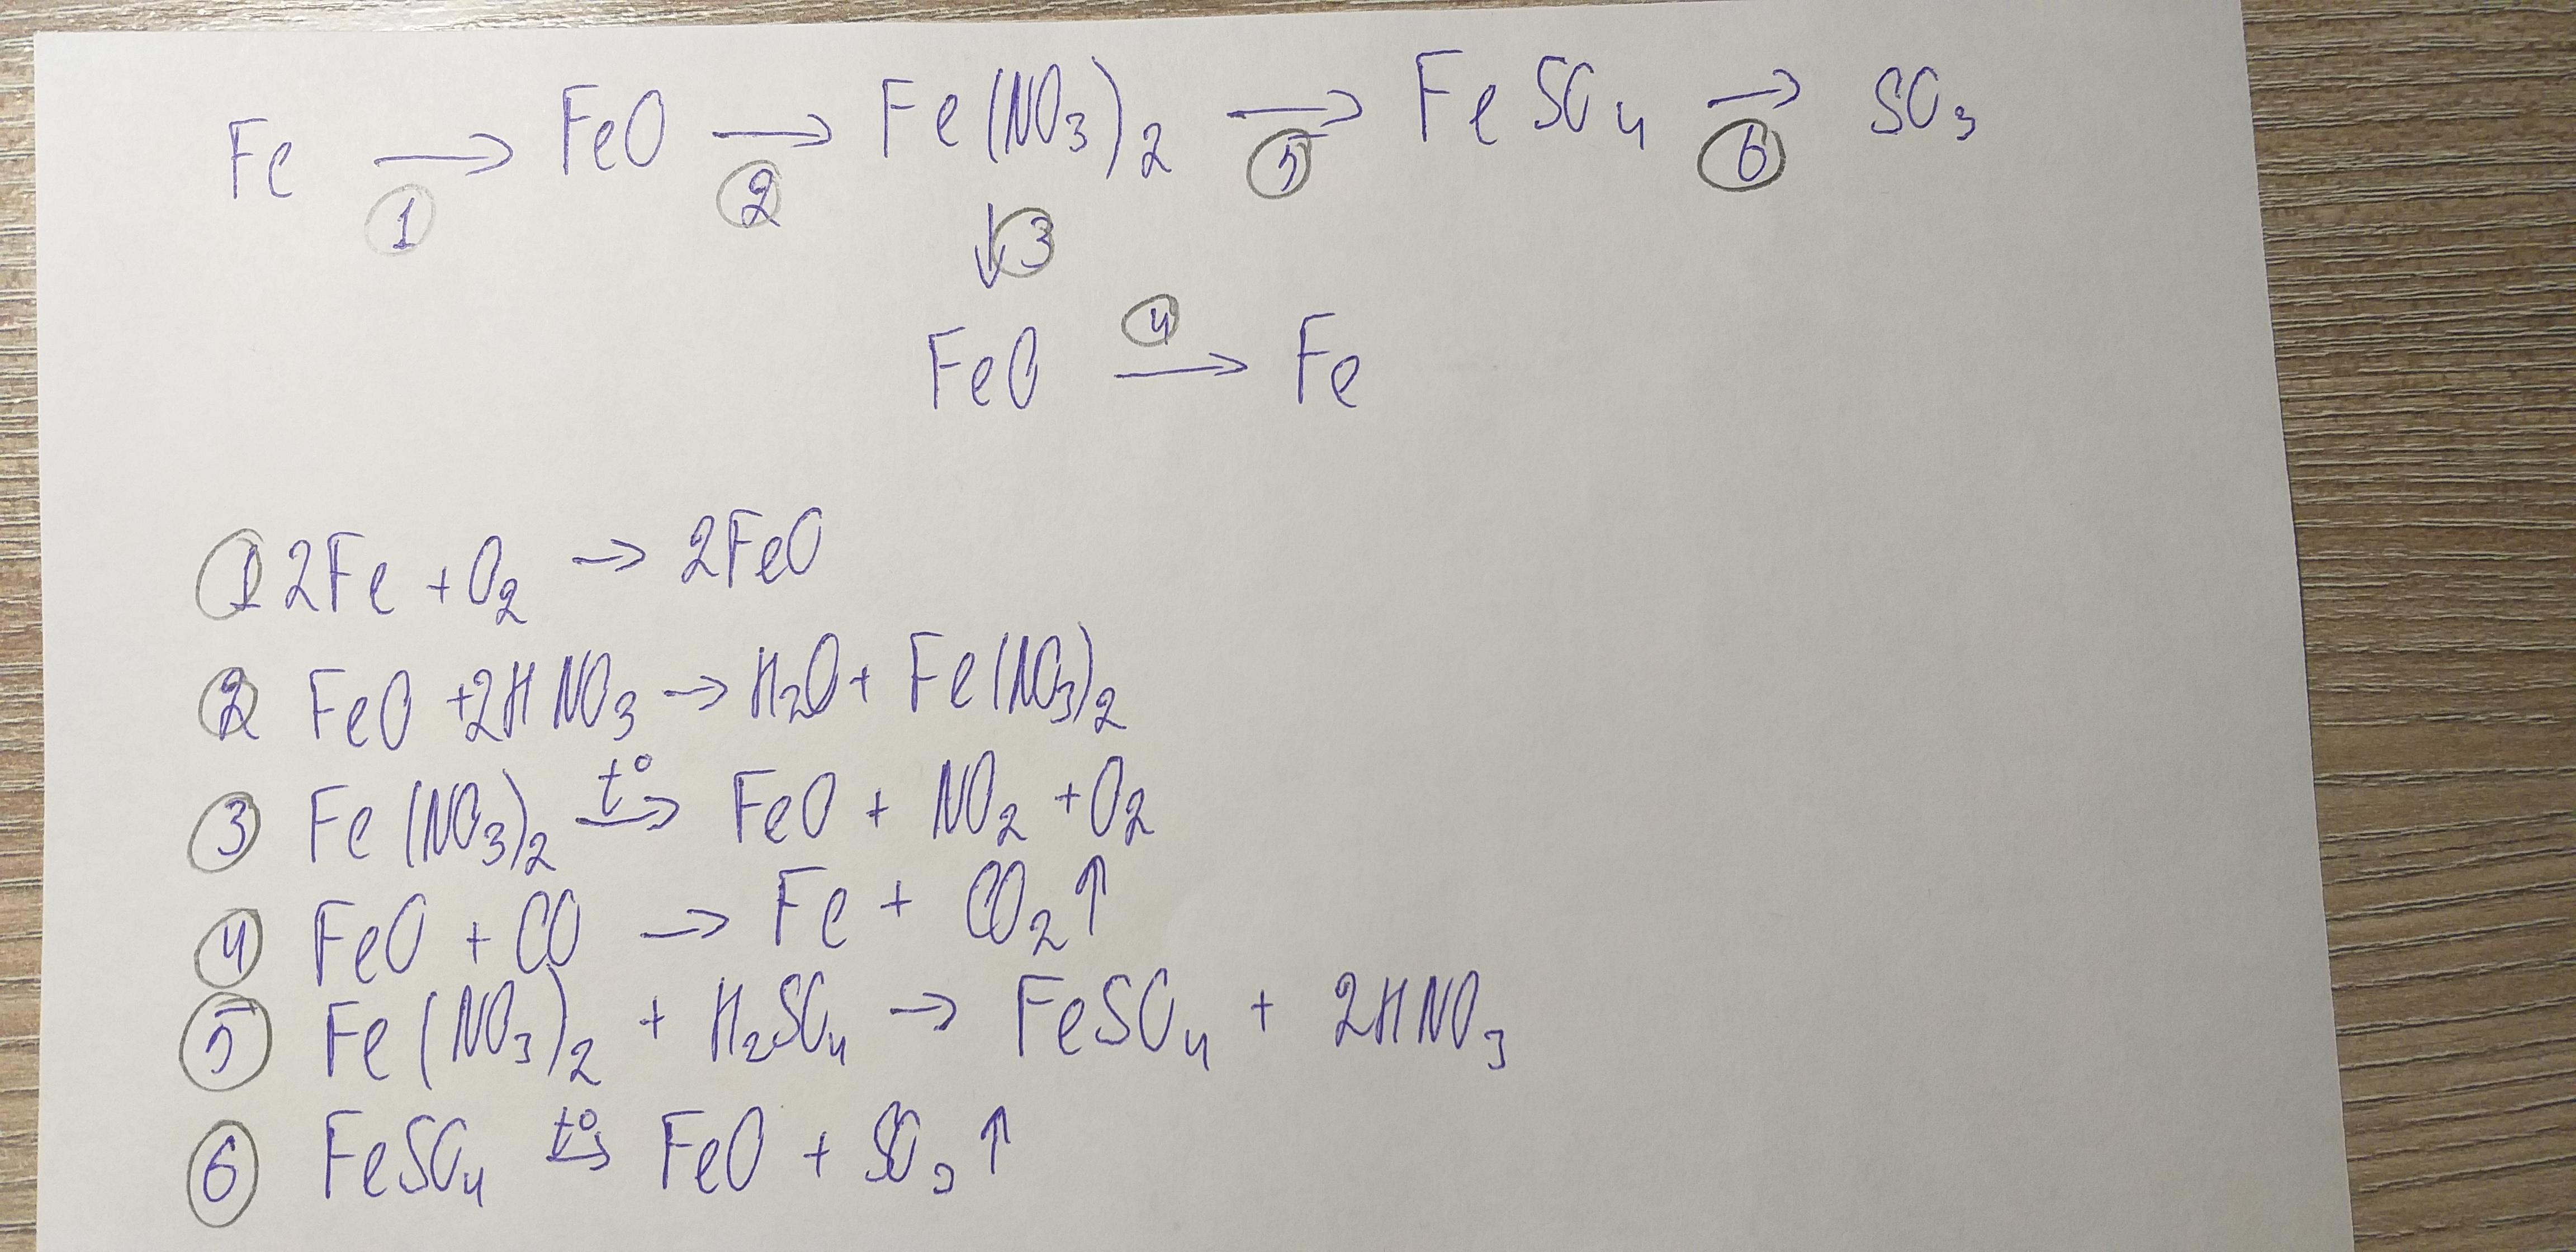 Fe → FeO → Fe(NO₃)₂ → FeSO₄ → SO₃
1 2 5 6
↓ 3
4
FeO → Fe
1 2Fe + O₂ → 2FeO
2 FeO + 2HNO₃ → H₂O + Fe(NO₃)₂
3 Fe(NO₃)₂ t° → FeO + NO₂ + O₂
4 FeO + CO → Fe + CO₂↑
5 Fe(NO₃)₂ + H₂SO₄ → FeSO₄ + 2HNO₃
6 FeSO₄ t° → FeO + SO₃↑